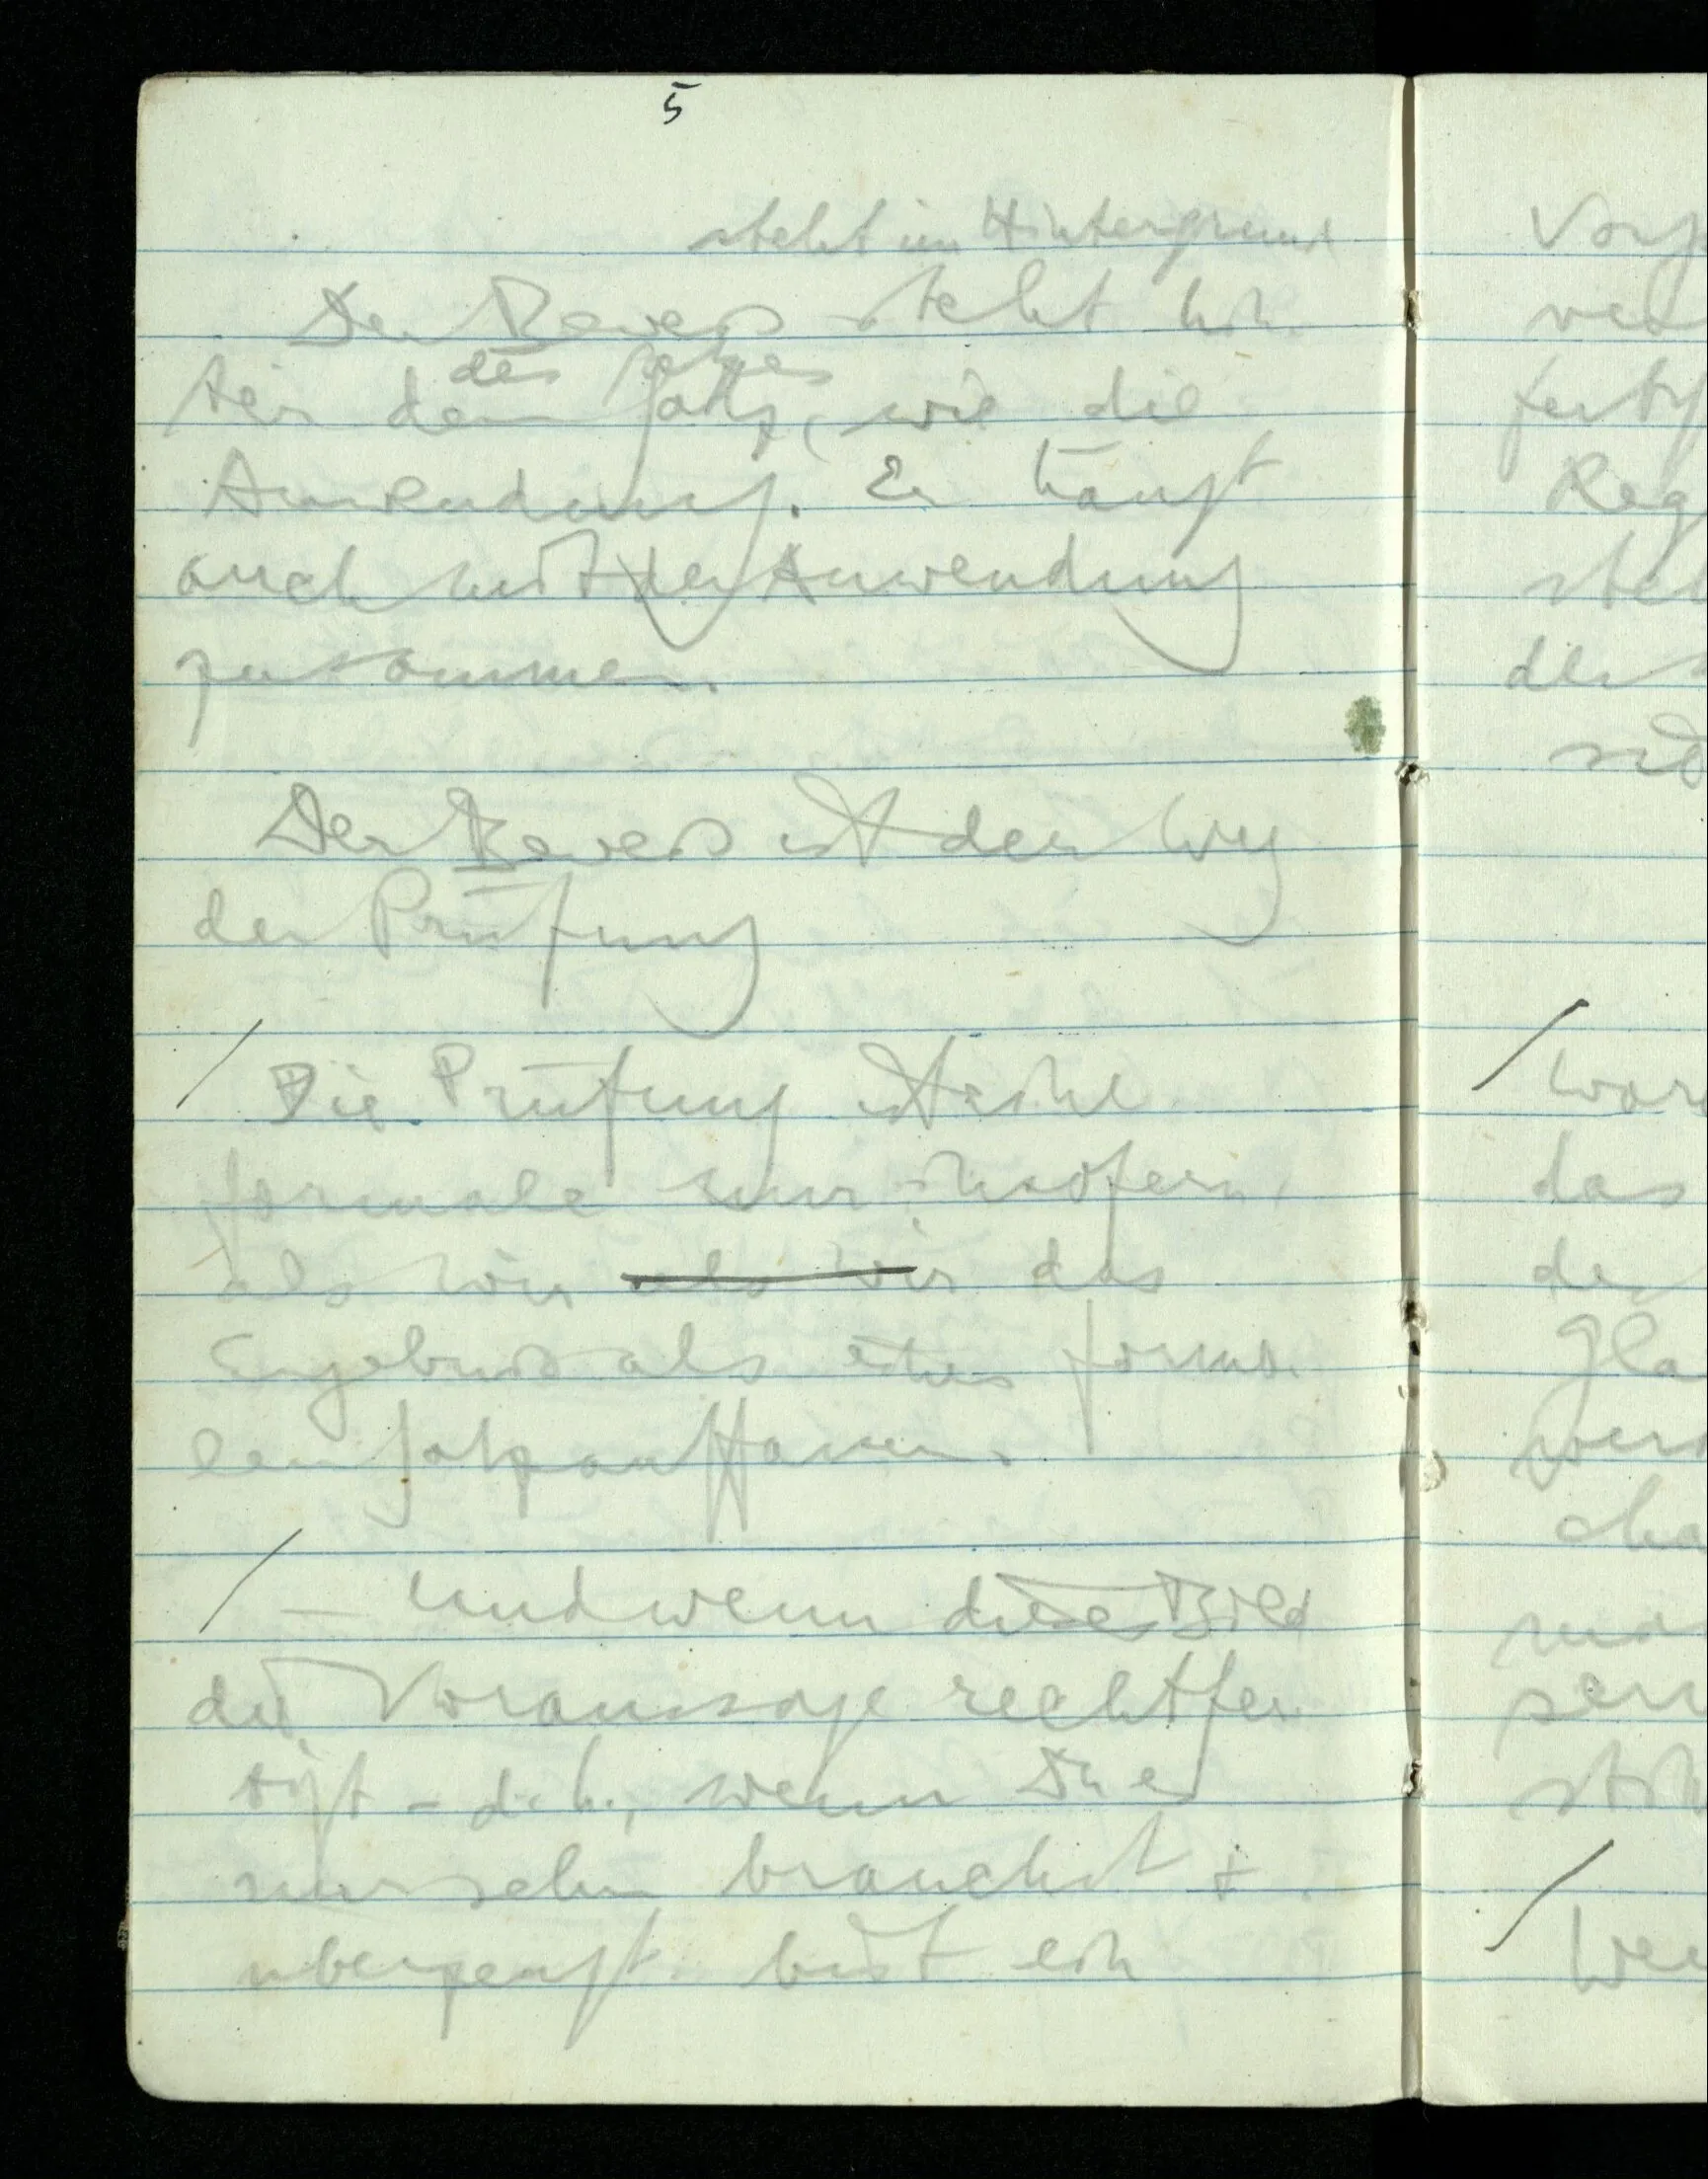 5
steht im Hintergrund
Der Beweis steht hin-
des Satzes
ter dem Satz, wie die
Anwendung. Er hängt
auch mit der Anwendung
zusammen.
Der Beweis ist der Weg
der Prüfung
/ Die Prüfung ist eine
formale nur insofern,
als wir als wir das
Ergebnis als eines forma-
len Satz auffassen.
/ – Und wenn dieses Bild
die Voraussage rechtfer-
tigt – d.h., wenn Du es
nur sehn brauchst +
überzeugt bist ein
Vor
ver
fertig
Reg
ste
der
sid
/ War
das
de
Gla
wer
cha
mas
sein
/ We